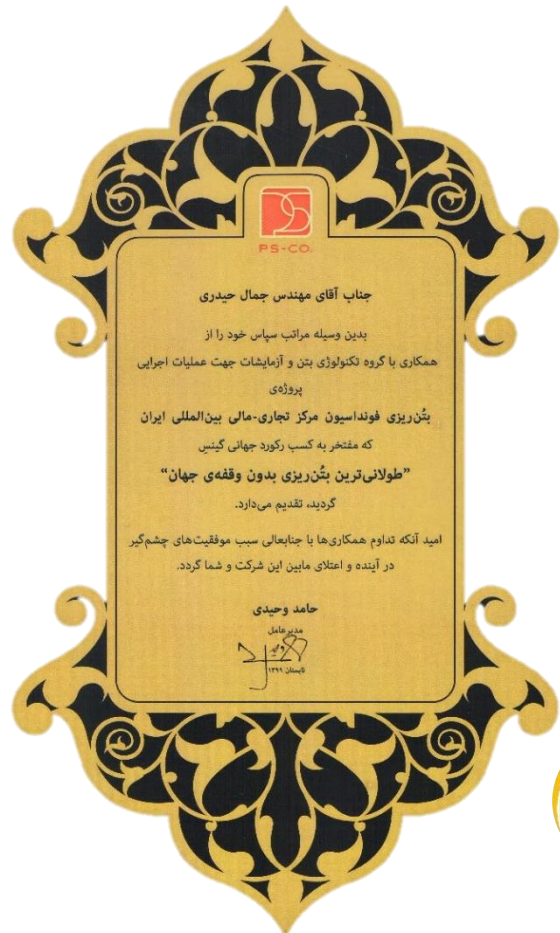 PS-CO.
جناب آقای مهندس جمال حیدری
بدین وسیله مراتب سپاس خود را از
همکاری با گروه تکنولوژی بتن و آزمایشات جهت عملیات اجرایی
پروژه‌ی
بتُن‌ریزی فونداسیون مرکز تجاری-مالی بین‌المللی ایران
که مفتخر به کسب رکورد جهانی گینس
"طولانی‌ترین بتُن‌ریزی بدون وقفه‌ی جهان"
گردید، تقدیم می‌دارد.
امید آنکه تداوم همکاری‌ها با جنابعالی سبب موفقیت‌های چشم‌گیر
در آینده و اعتلای مابین این شرکت و شما گردد.
حامد وحیدی
مدیرعامل
تابستان ۱۳۹۹